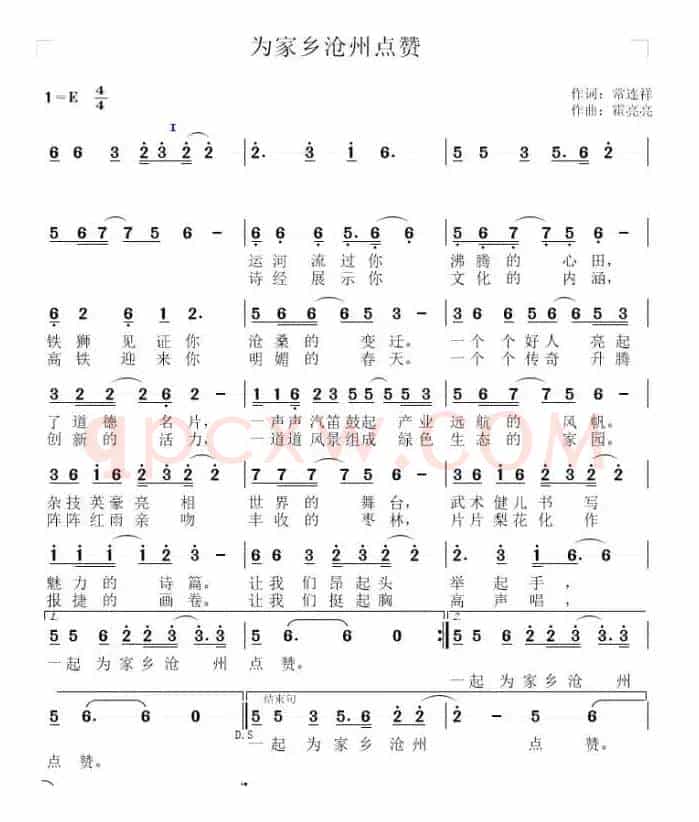 为家乡沧州点赞
1=E 4/4
作词：常连祥
作曲：霍亮亮
I
6 6 3 2 3 2 2 | 2. 3 1 6. | 5 5 3 5 6 2 2 |
5 6 7 7 5 6 - | 6 6 6 5. 6 6 | 5 6 7 7 5 6 - |
运河流过你 沸腾的心田，
诗经展示你 文化的内涵，
6 2 6 1 2. | 5 6 6 6 6 5 3 - | 3 6 6 5 6 6 5 3 |
铁狮见证你 沧桑的变迁。 一个个好人亮起
高铁迎来你 明媚的春天。 一个个传奇升腾
3 2 2 2 6 2 - | 1 1 6 1 2 3 5 5 5 5 3 | 5 6 7 7 5 6 - |
了道德名片， 一声声汽笛鼓起产业 远航的风帆。
创新的活力， 一道道风景组成绿色 生态的家园。
3 6 1 6 2 3 2 2 | 7 7 7 7 5 6 - | 3 6 1 6 2 3 2 2 |
杂技英豪亮相 世界的舞台， 武术健儿书写
阵阵红雨亲吻 丰收的枣林， 片片梨花化作
1 1 1 1 2 3 - | 6 6 3 2 3 2 2 | 2. 3 1 6. 6 |
魅力的诗篇。 让我们昂起头 举起手，
报捷的画卷。 让我们挺起胸 高声唱，
1. 2.
5 5 6 2 2 3 3 | 5 6. 6 0 :| 5 5 6 2 2 3 3 |
一起为家乡沧州 点赞。
一起为家乡沧州
结束句
5 6. 6 0 | 5 5 3 5. 6 2 2 | 2 - 5 6 |
D.S
一起为家乡沧州 点赞。
点赞。
qpcxw.com